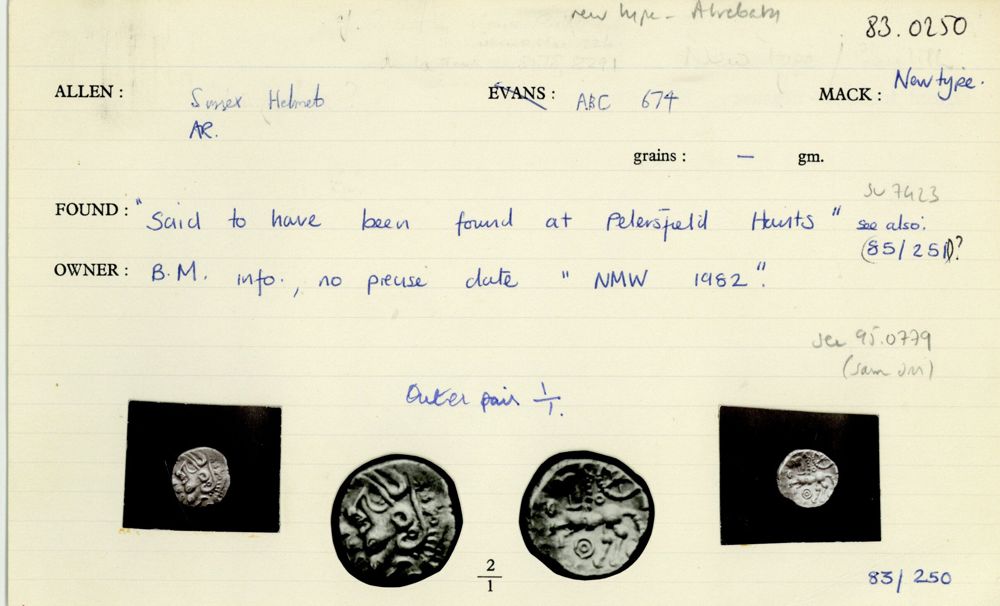 new type - Atrebatic
83.0250
ALLEN : Sussex Helmet EVANS : ABC 674 MACK : New type.
AR.
grains : — gm.
SU 7423
FOUND : "Said to have been found at Petersfield Hants" see also:
(85/251)?
OWNER : B.M. info., no precise date "NMW 1982".
see 95.0779
(same
Outer pair 1/1.
2/1
83/250